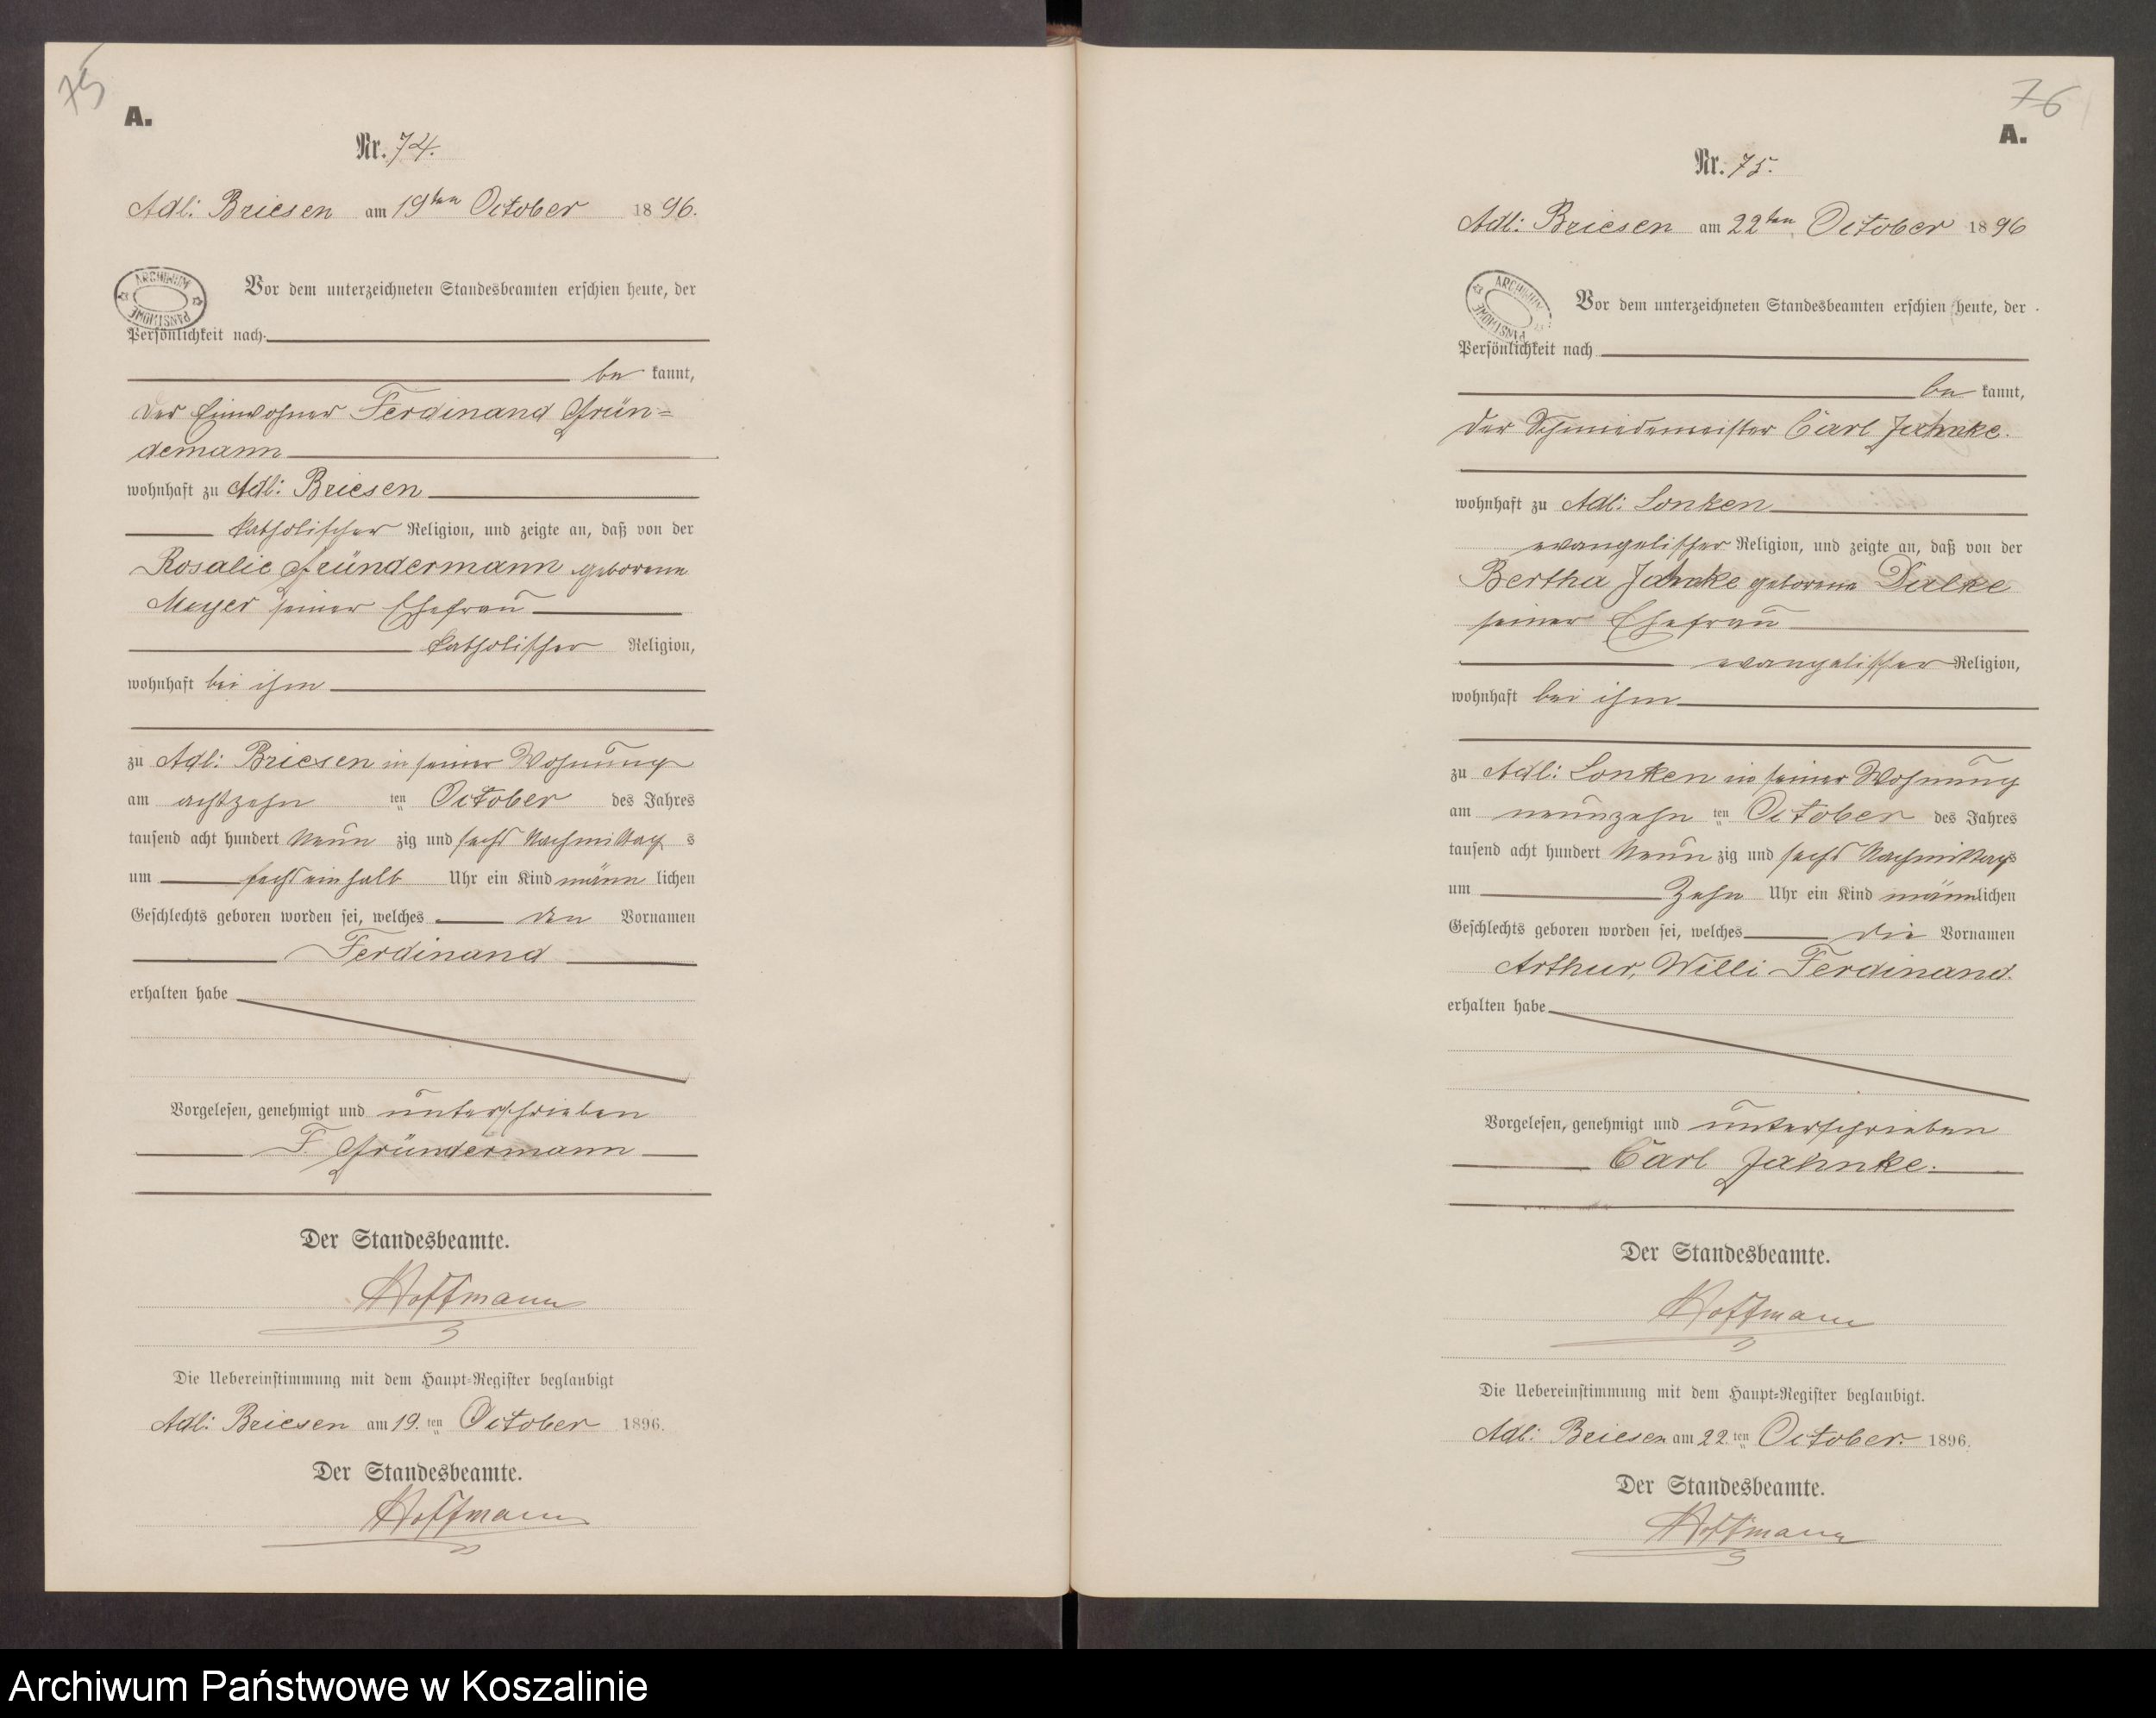 75
A.
Nr. 74.
Adl: Briesen am 19ten October 1896.
ARCHIWUM
PAŃSTWOWE
Vor dem unterzeichneten Standesbeamten erschien heute, der
Persönlichkeit nach
be kannt,
der Einwohner Ferdinand Grün=
demann
wohnhaft zu Adl: Briesen
katholischer Religion, und zeigte an, daß von der
Rosalie Gründermann geborene
Meyer seiner Ehefrau
katholischer Religion,
wohnhaft bei ihm
zu Adl: Briesen in seiner Wohnung
am achtzehn ten October des Jahres
tausend acht hundert Neun zig und sechs Nachmittag s
um sechseinhalb Uhr ein Kind männ lichen
Geschlechts geboren worden sei, welches den Vornamen
Ferdinand
erhalten habe
Vorgelesen, genehmigt und unterschrieben
F. Gründermann
Der Standesbeamte.
Hoffmann
Die Uebereinstimmung mit dem Haupt=Register beglaubigt
Adl: Briesen am 19. ten October 1896.
Der Standesbeamte.
Hoffmann
76
A.
Nr. 75.
Adl: Briesen am 22ten October 1896
ARCHIWUM
PAŃSTWOWE
Vor dem unterzeichneten Standesbeamten erschien heute, der
Persönlichkeit nach
be kannt,
der Schmiedemeister Carl Jahnke.
wohnhaft zu Adl: Lonken
evangelischer Religion, und zeigte an, daß von der
Bertha Jahnke geborene Dalke
seiner Ehefrau
evangelischer Religion,
wohnhaft bei ihm
zu Adl: Lonken in seiner Wohnung
am neunzehn ten October des Jahres
tausend acht hundert Neun zig und sechs Nachmittags
um Zehn Uhr ein Kind männlichen
Geschlechts geboren worden sei, welches die Vornamen
Arthur, Willi Ferdinand.
erhalten habe
Vorgelesen, genehmigt und unterschrieben
Carl Jahnke.
Der Standesbeamte.
Hoffmann
Die Uebereinstimmung mit dem Haupt=Register beglaubigt.
Adl: Briesen am 22. ten October. 1896.
Der Standesbeamte.
Hoffmann
Archiwum Państwowe w Koszalinie